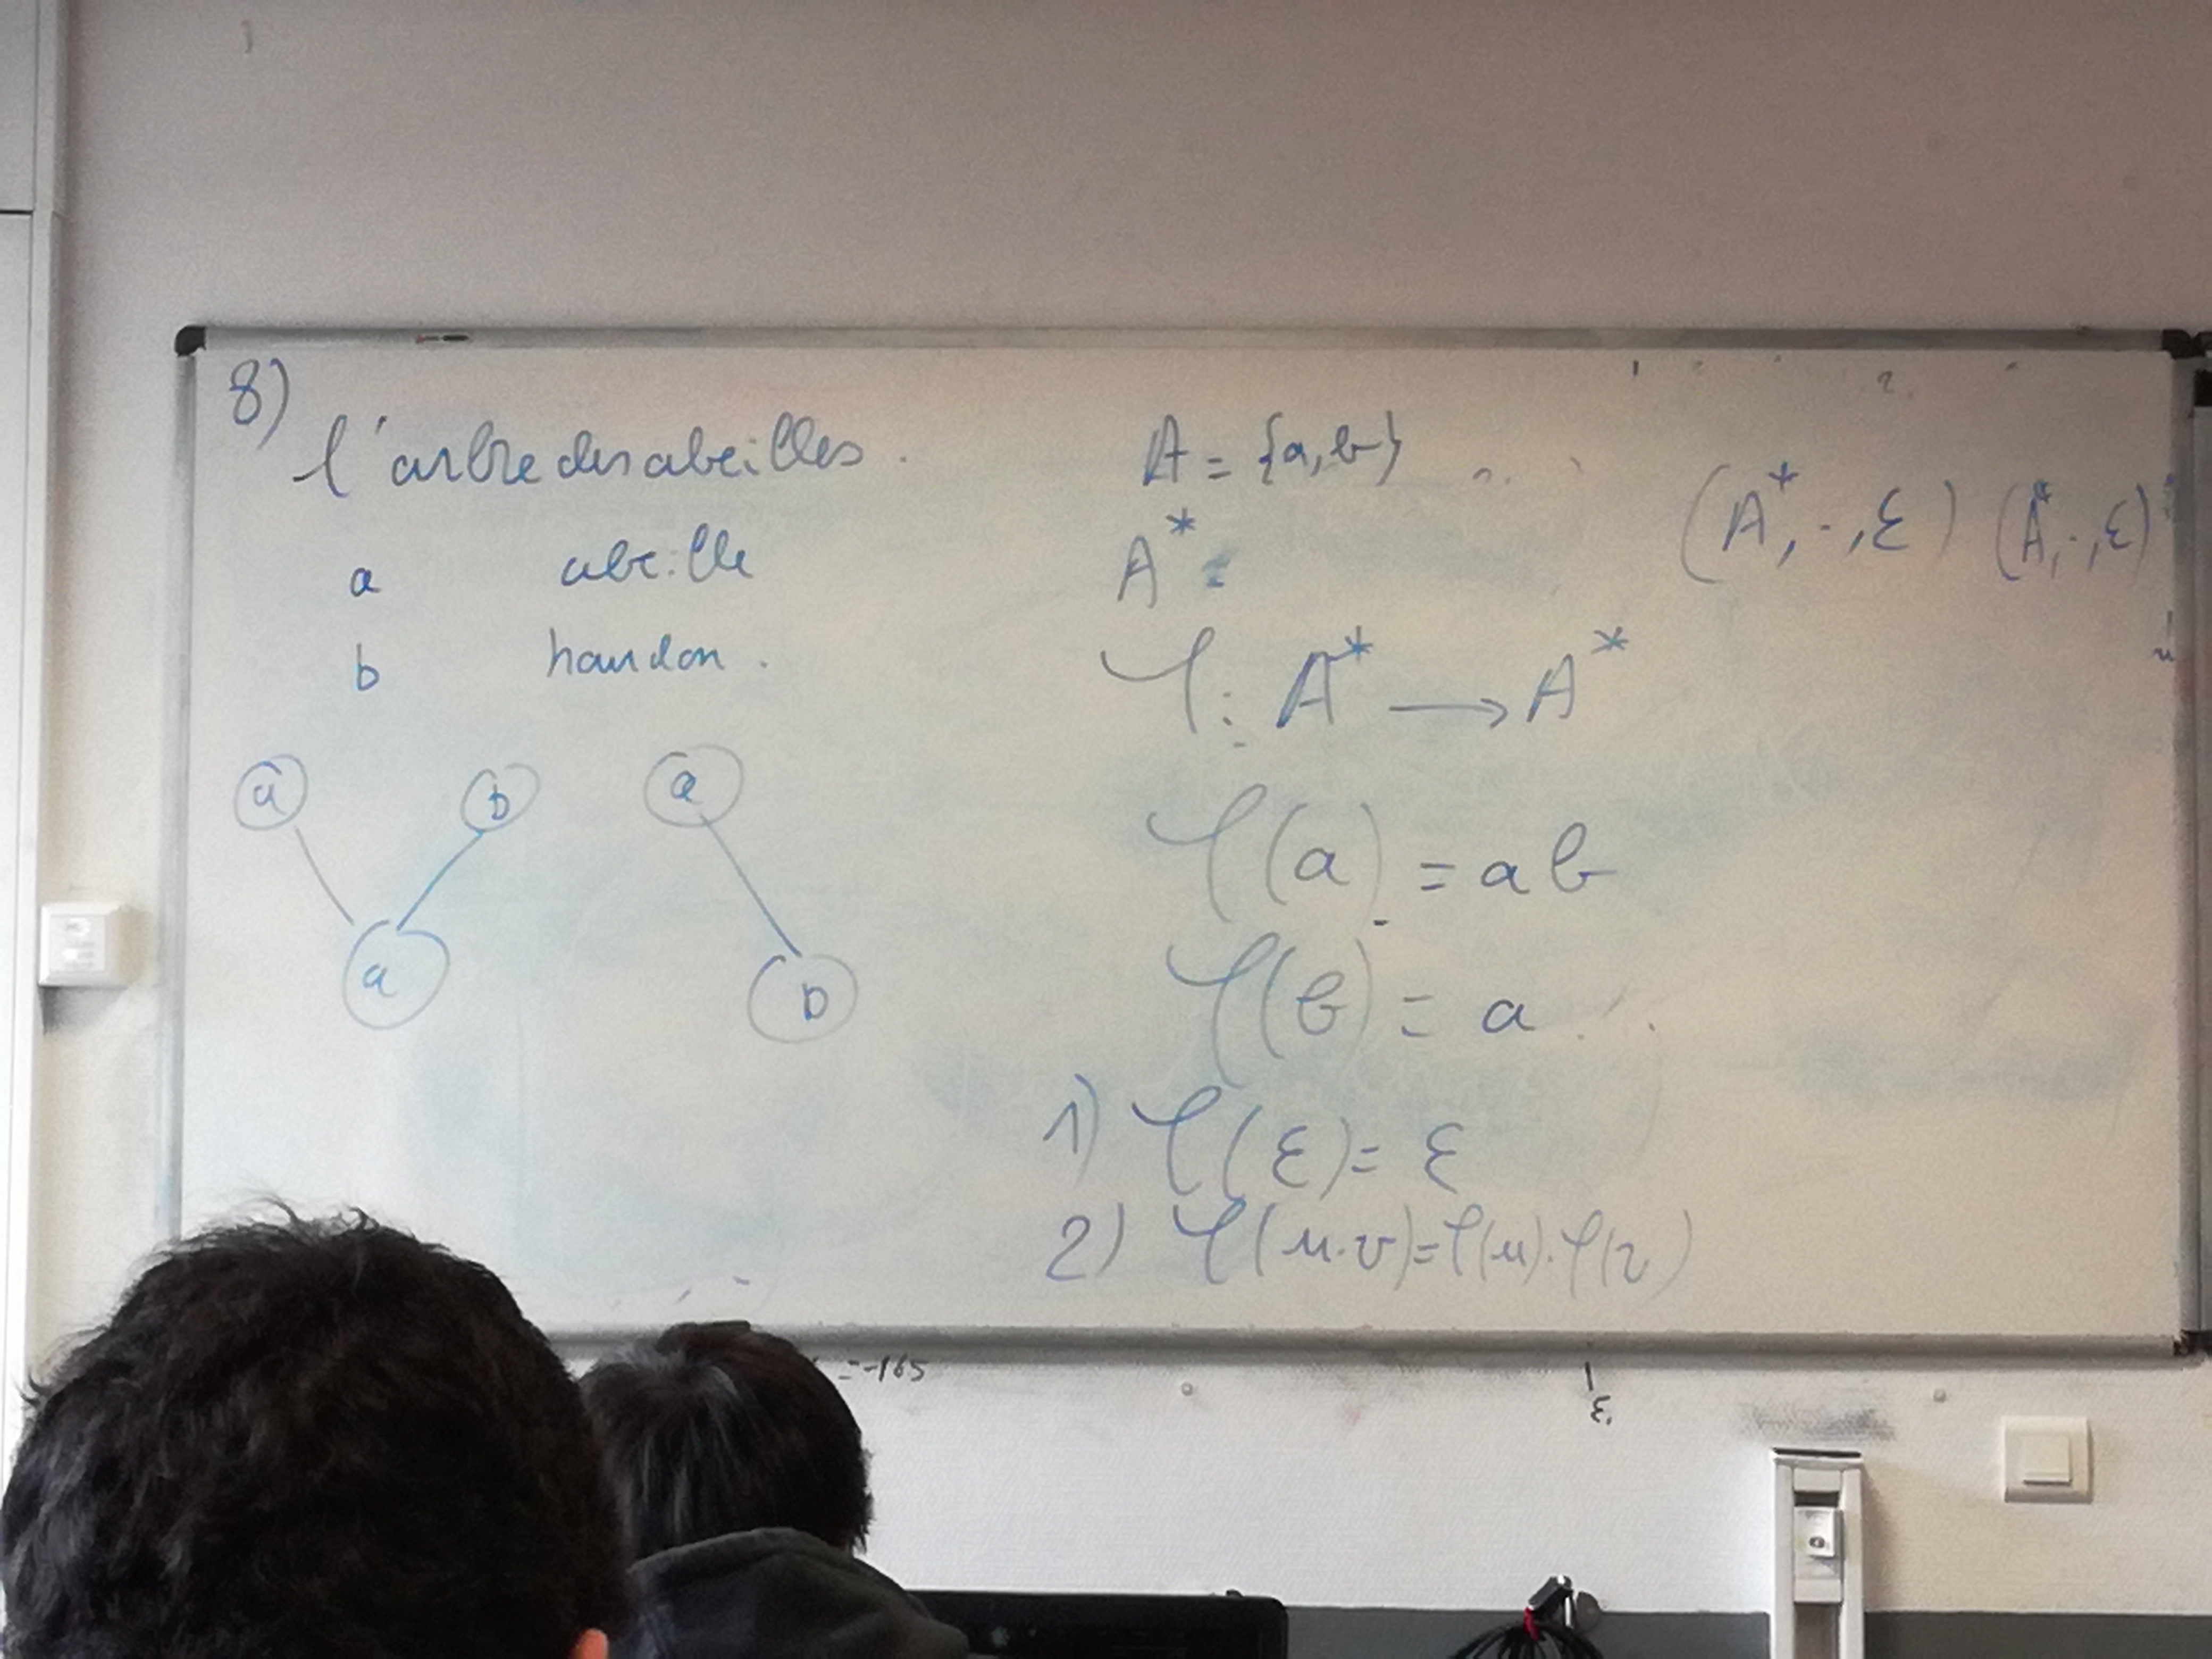 8)
l'arbre des abeilles.
a abeille
b bourdon.
a b a
a b
A = {a, b}
A* =
(A*, ·, ε) (A*, ·, ε)
φ : A* → A*
φ(a) = ab
φ(b) = a
1) φ(ε) = ε
2) φ(u·v) = φ(u)·φ(v)
= -165
ε.